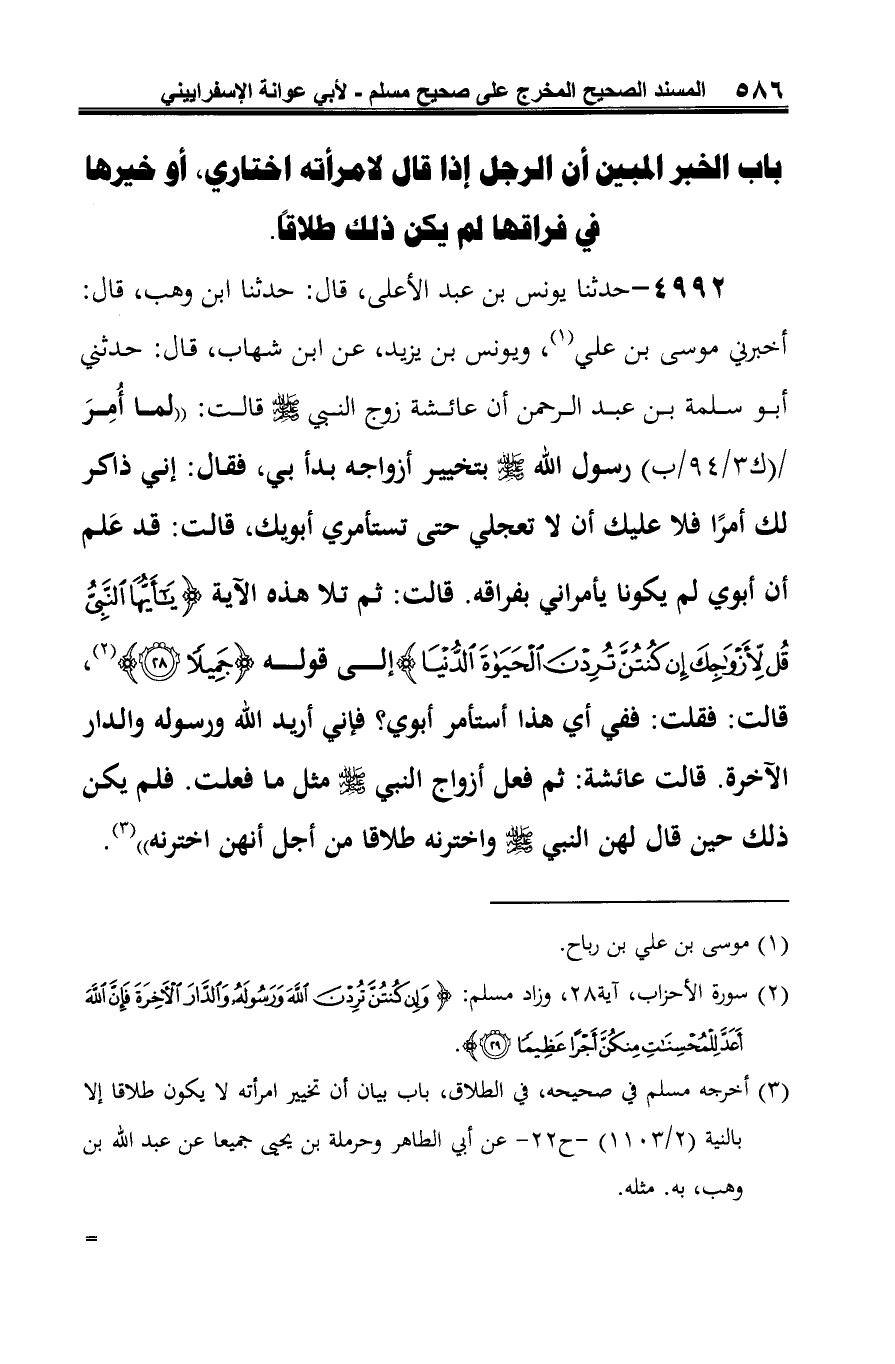 ٥٨٦ المسند الصحيح المخرج على صحيح مسلم - لأبي عوانة الإسفراييني
باب الخبر المبين أن الرجل إذا قال لامرأته اختاري، أو خيرها
في فراقها لم يكن ذلك طلاقاً.
٤٩٩٢-حدثنا يونس بن عبد الأعلى، قال: حدثنا ابن وهب، قال:
أخبرني موسى بن علي(١)، ويونس بن يزيد، عن ابن شهاب، قال: حدثني
أبو سلمة بن عبد الرحمن أن عائشة زوج النبي ﷺ قالت: ((لما أُمِرَ
/(ك٩٤/٣/ب) رسول الله ﷺ بتخيير أزواجه بدأ بي، فقال: إني ذاكر
لك أمرًا فلا عليك أن لا تعجلي حتى تستأمري أبويك، قالت: قد عَلم
أن أبوي لم يكونا يأمراني بفراقه. قالت: ثم تلا هذه الآية ﴿يَٰٓأَيُّهَا ٱلنَّبِىُّ
قُل لِّأَزْوَٰجِكَ إِن كُنتُنَّ تُرِدْنَ ٱلْحَيَوٰةَ ٱلدُّنْيَا﴾ إلى قوله ﴿جَمِيلًا ٢٨﴾(٢)،
قالت: فقلت: ففي أي هذا أستأمر أبوي؟ فإني أريد الله ورسوله والدار
الآخرة. قالت عائشة: ثم فعل أزواج النبي ﷺ مثل ما فعلت. فلم يكن
ذلك حين قال لهن النبي ﷺ واخترنه طلاقا من أجل أنهن اخترنه))(٣).
(١) موسى بن علي بن رباح.
(٢) سورة الأحزاب، آية٢٨، وزاد مسلم: ﴿وَإِن كُنتُنَّ تُرِدْنَ ٱللَّهَ وَرَسُولَهُۥ وَٱلدَّارَ ٱلْـَٔاخِرَةَ فَإِنَّ ٱللَّهَ
أَعَدَّ لِلْمُحْسِنَٰتِ مِنكُنَّ أَجْرًا عَظِيمًا ٢٩﴾.
(٣) أخرجه مسلم في صحيحه، في الطلاق، باب بيان أن تخيير امرأته لا يكون طلاقا إلا
بالنية (١١٠٣/٢) -ح٢٢- عن أبي الطاهر وحرملة بن يحيى جميعا عن عبد الله بن
وهب، به. مثله.
=